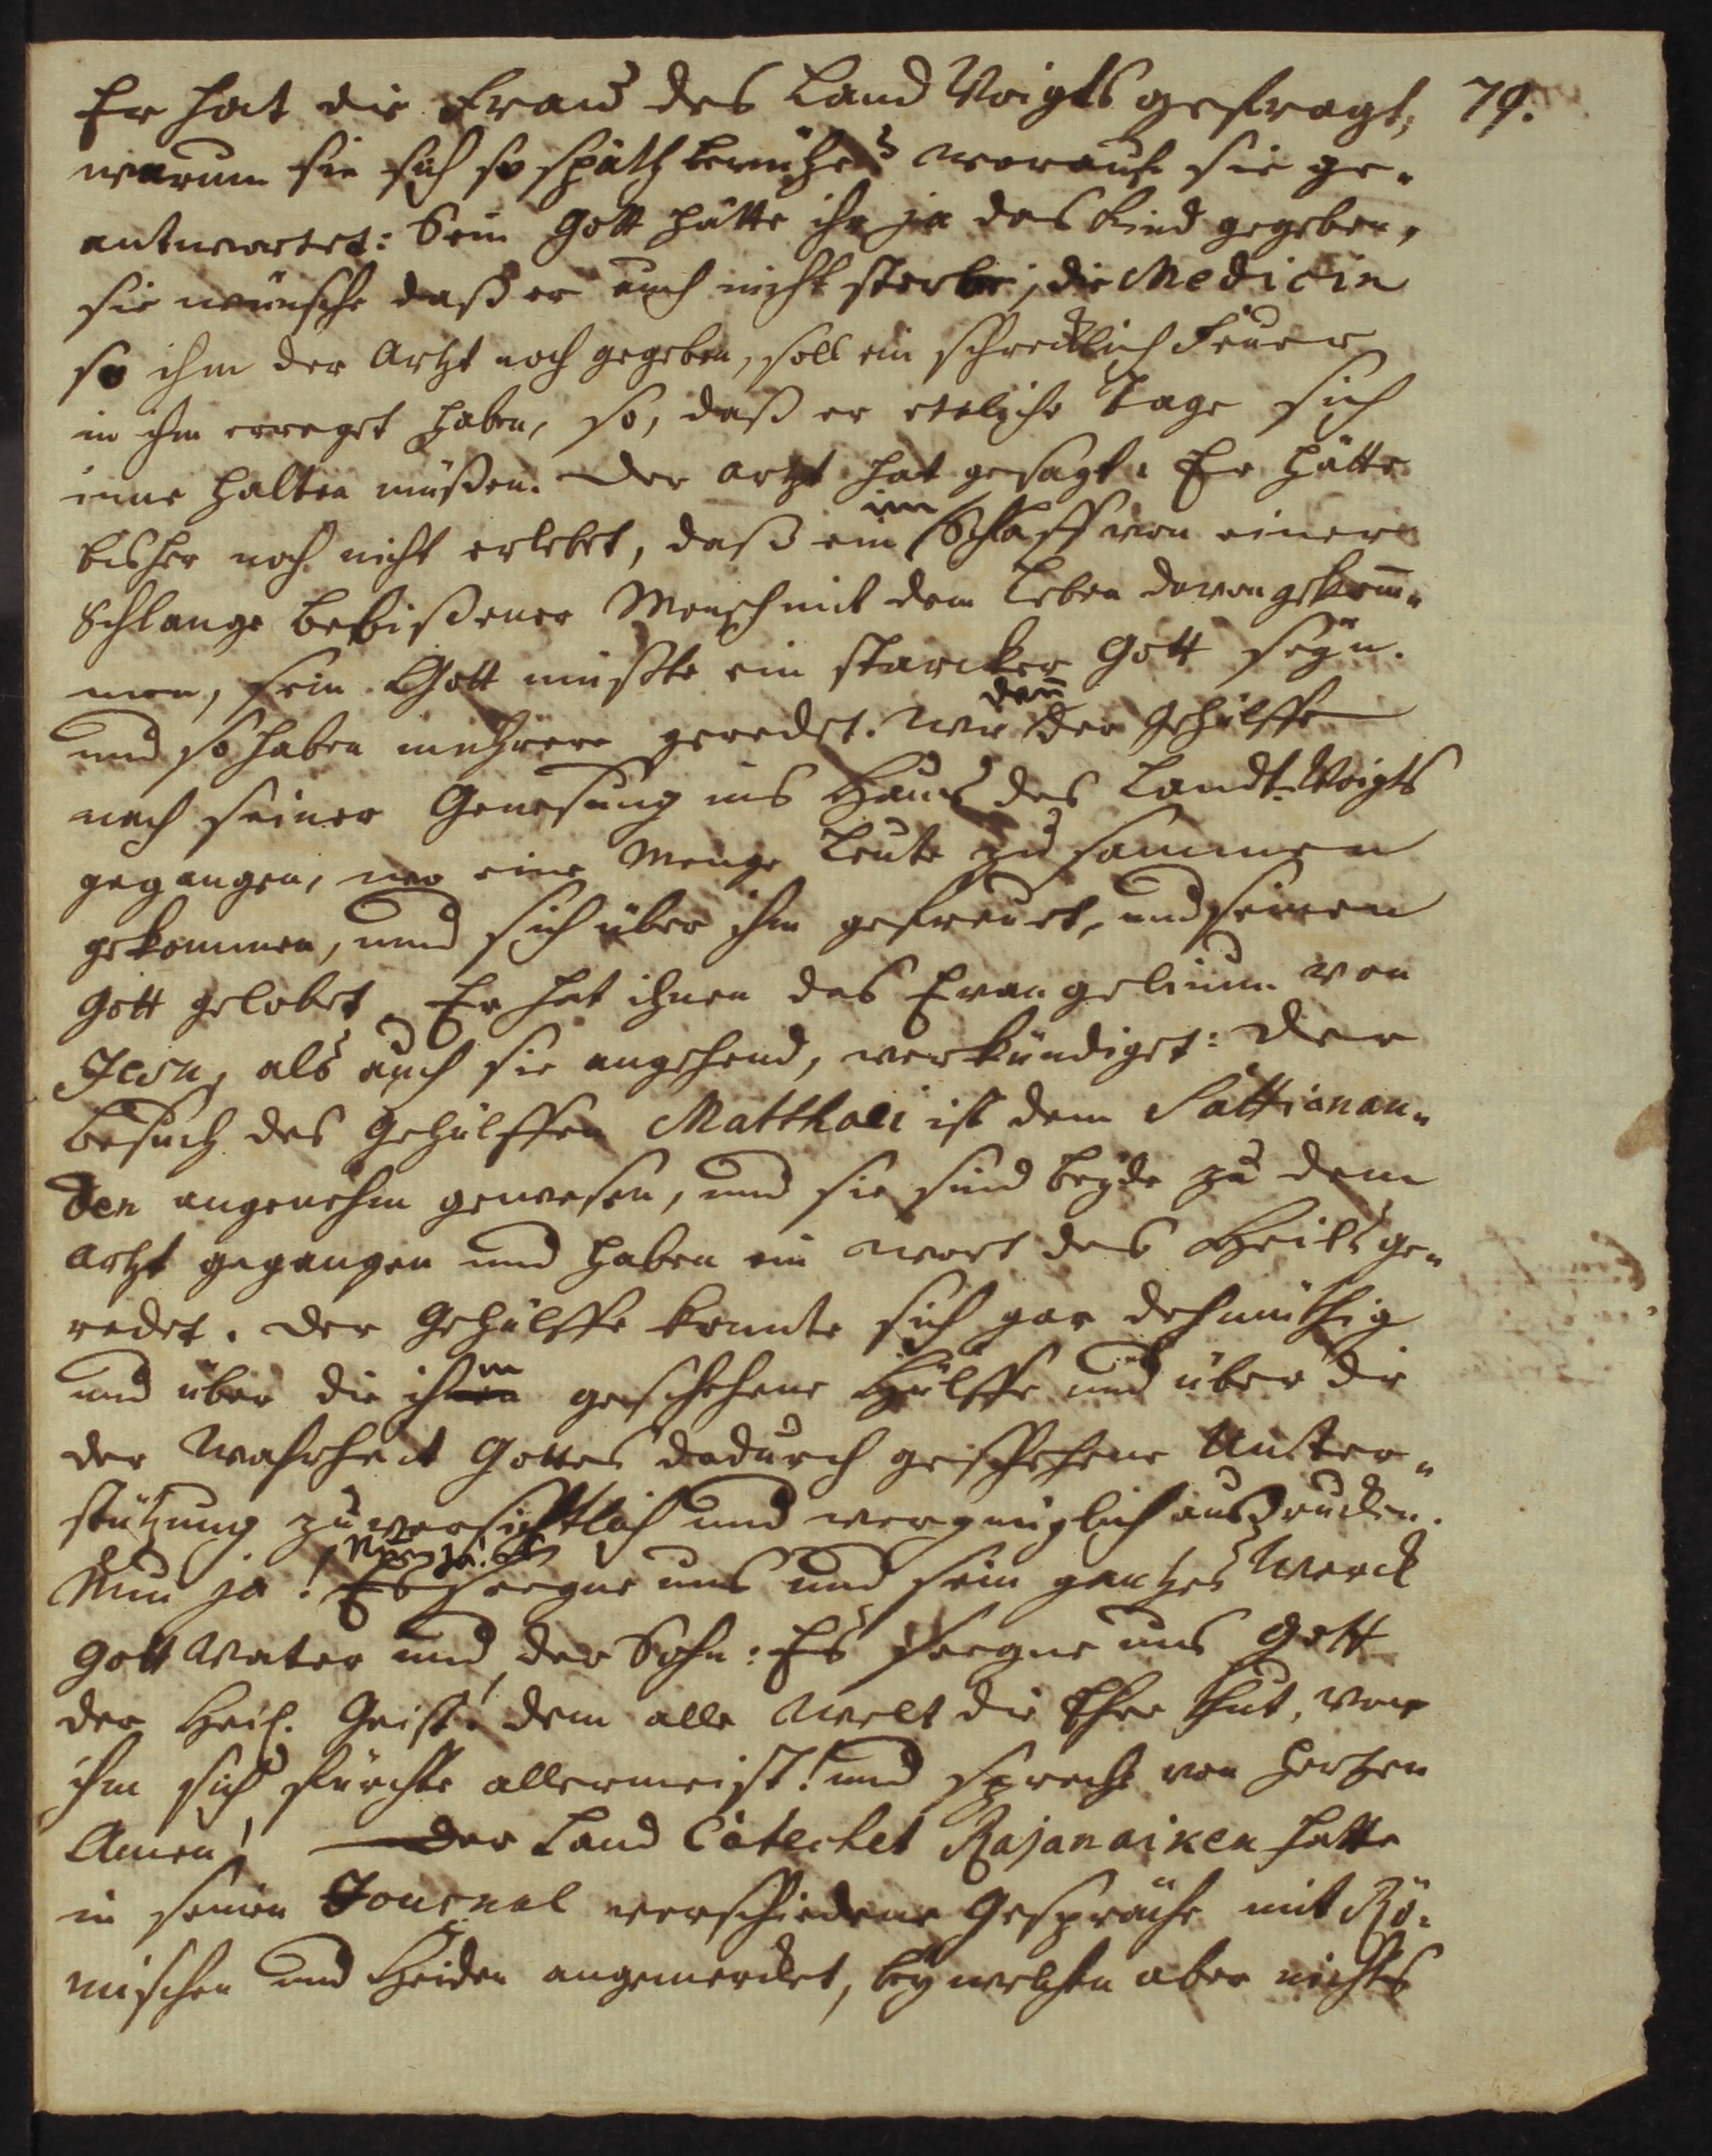 79.
Er hat die Frau des Land Voigts gefragt,
warum sie sich so späth bemühe? worauf sie ge-
antwortet: Sein Gott hätte ihr ja das Kind gegeben,
sie wünsche daß er auch nicht sterbe, die Medicin
so ihm der Artzt noch gegeben, soll ein schrecklich Feuer
in ihm erreget haben, so, daß er etliche Tage sich
inne halten müßen. Der Artzt hat gesagt: Er hätte
bisher noch nicht erlebet, daß ein im Schlaff von einer
Schlange bebißener Mensch mit dem Leben davon gekom̅-
men, sein Gott müßte ein starcker Gott seyn.
und so haben mehrere geredet. Wie den̅ der Gehülffe
nach seiner Genesung ins Haus des Landt-Voigts
gegangen, wo eine Menge Leute zusammen
gekommen, und sich über ihn gefreuet, und seinen
Gott gelobet. Er hat ihnen das Evangelium von
Jesu, als auch sie angehend, verkündiget: Der
Besuch des Gehülffen Matthaei ist dem Sattianan-
den angenehm gewesen, und sie sind beyde zu dem
Artzt gegangen und haben ein Wort des Heils ge-
redet. Der Gehülffe konnte sich gar dehmüthig
und über die ihm geschehene Hülffe und über die
der Wahrheit Gottes dadurch geschehene Unter-
stützung zuversichtlich und vergnüglich ausdrucken.
Nun ja! Es seegne uns und sein gantzes Werck
Gott Vater und der Sohn: Es seegne uns Gott
der Heil. Geist! dem alle Welt die Ehre thut, vor
ihm sich fürchte allermeist! und sprecht von Hertzen
Amen! Der Land Catechet Rajanaiken hatte
in seinem Journal verschiedene Gespräche mit Rö-
mischen und Heiden angemercket, bey welchen aber nichts